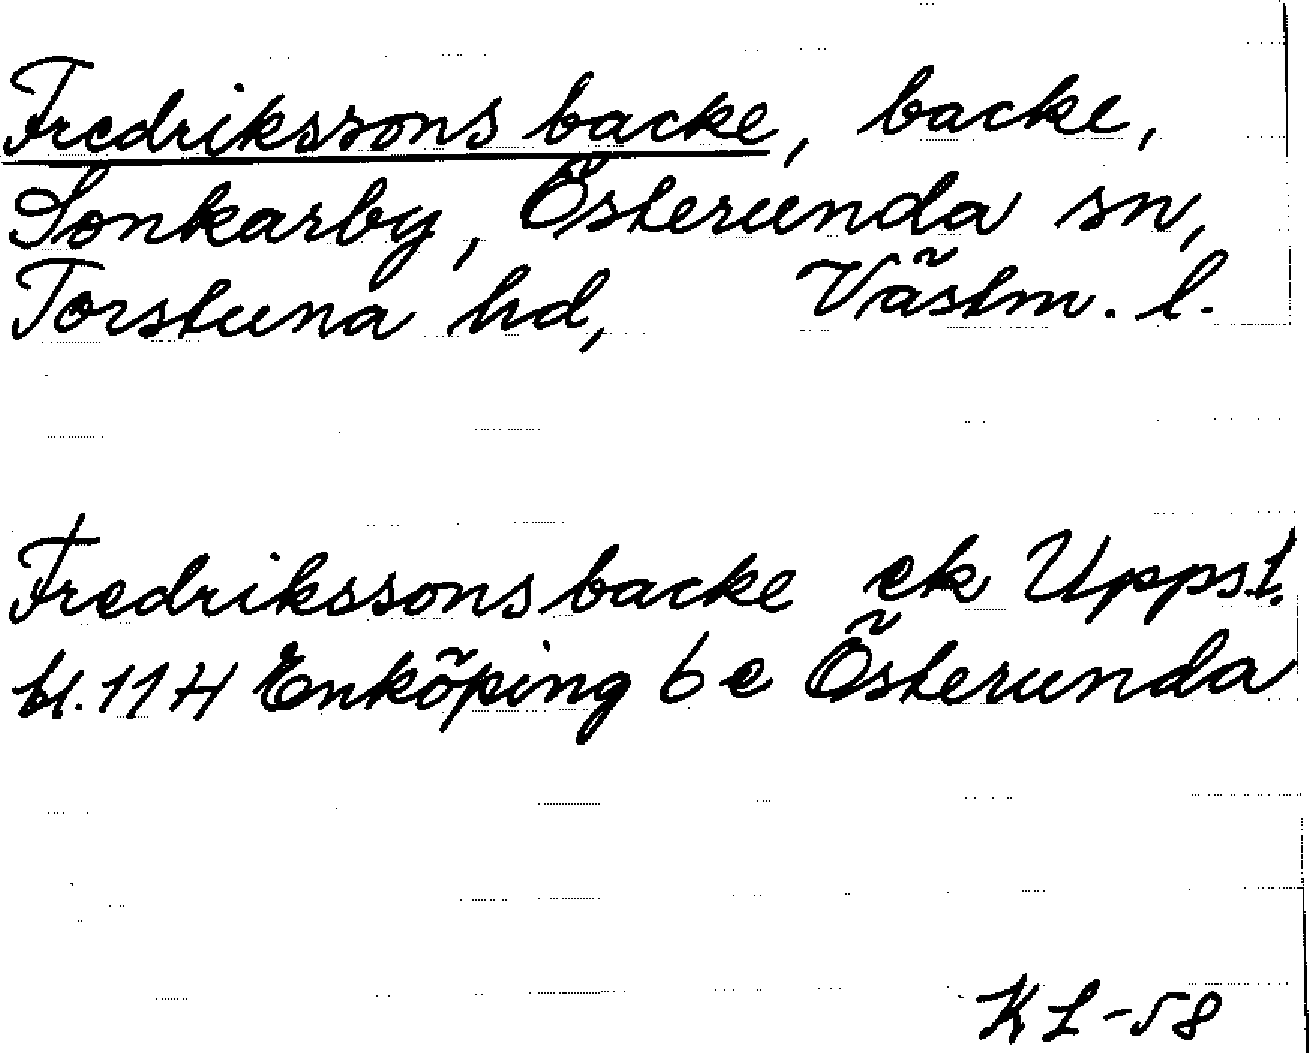 Fredrikssons backe, backe,
Sonkarby, Österunda sn,
Torstuna hd, Västm. l.
Fredrikssons backe ek Upps.l.
bl. 11 H Enköping 6 e Österunda
KL-58